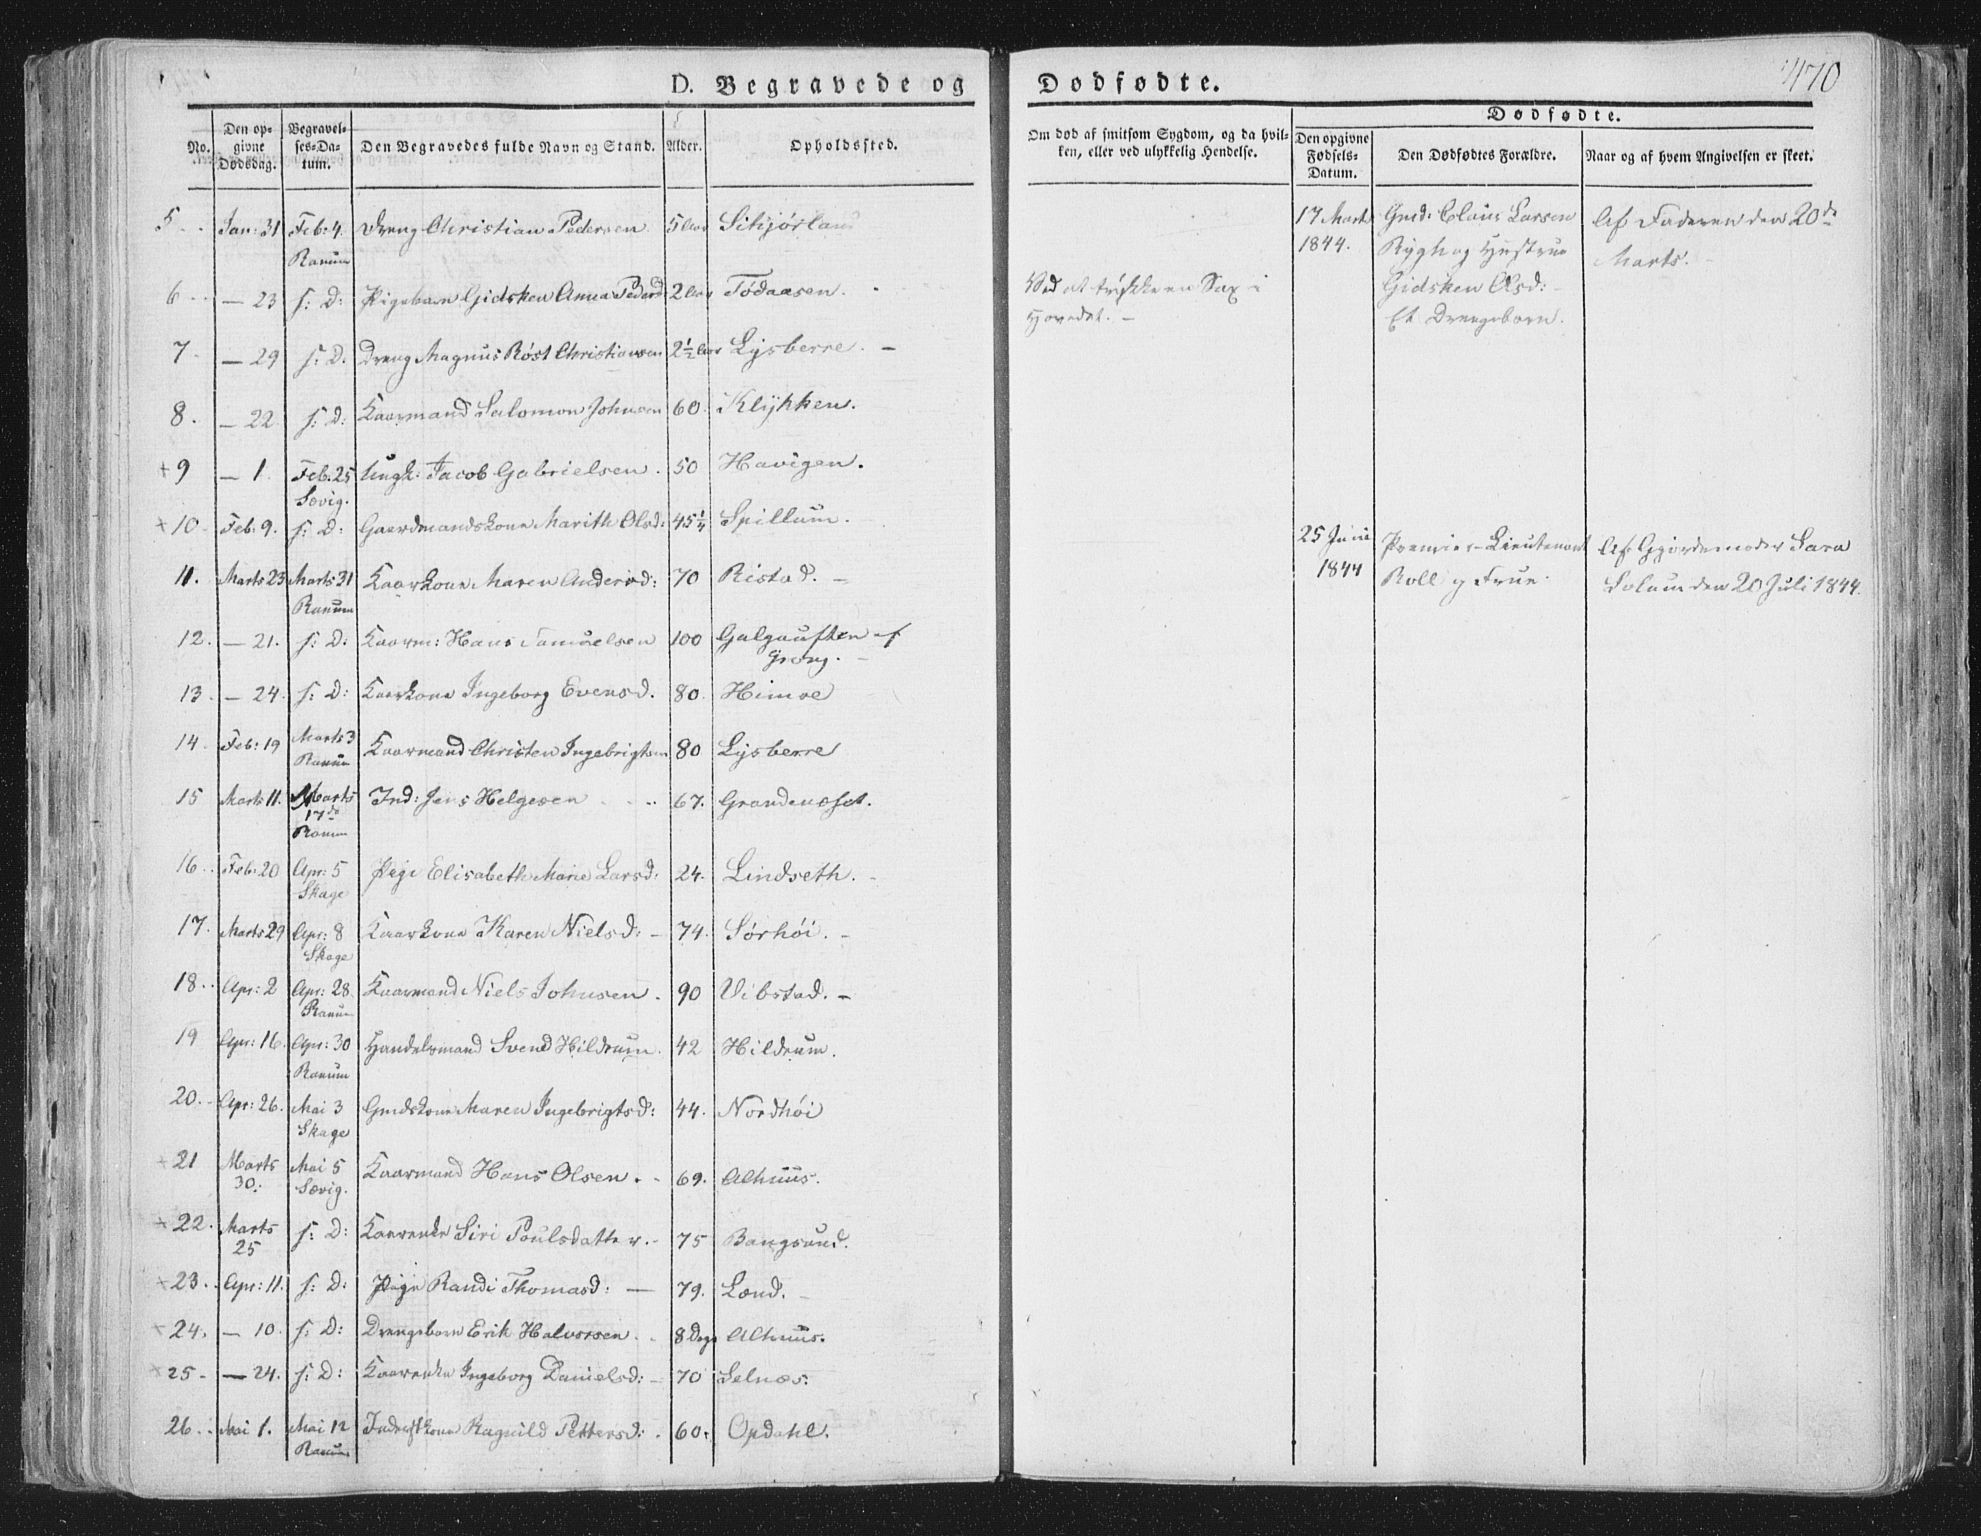 470
D. Begravede og Dødfødte.
No. Den opgivne Dødsdag. Begravelses-Datum. Den Begravedes fulde Navn og Stand. Alder. Opholdssted.
Om død af smitsom Sygdom, og da hvilken, eller ved ulykkelig Hendelse.
Dødfødte.
Den opgivne Fødsels-Datum. Den Dødfødtes Forældre. Naar og af hvem Angivelsen er skeet.
5 Jan: 31 Feb: 4 Ranum Dreng Christian Pedersen 5 Aar
6 - 23 s: D: Pigebarn Gidsken Anna Pedersd: 2 Aar Tødaasen.
7 - 29 s: D. Dreng Magnus Røst Christiansen 2½ Aar Lysberre. -
8. - 22 s: D: Kaarmand Salomon Johnsen 60 Klykken.
+ 9 - 1. Feb. 25 Sævig. Ungk: Jacob Gabrielsen. 50 Havigen.
+ 10. Feb: 9. s: D: Gaardmandskone Marith Olsd: 45¼ Spillum.
11. Marts 23 Marts 31 Ranum Kaarkone Maren Andersd: 70 Ristad. -
12. - 21. s: D: Kaarm: Hans Samuelsen 100 Galgauften af Grong. -
13. - 24. s: D: Kaarkone Ingeborg Evensd. 80. Himoe
14. Feb: 19 Marts 3 Ranum Kaarmand Christen Ingebrigtsen 80 Lysberre
15 Marts 11. Marts 17de Ranum Ind: Jens Helgesen 67. Grandenæset.
16. Feb: 20 Apr: 5 Skage Pige Elisabeth Marie Larsd: 24. Lindseth. -
17. Marts 29 Apr: 8 Skage Kaarkone Karen Nielsd: - 74. Sørhöi. -
18. Apr: 2 Apr: 28 Ranum Kaarmand Niels Johnsen. 90 Vibstad. -
19 Apr: 16. Apr: 30 Ranum Handelsmand Svend Hildrum. 42 Hildrum.
20. Apr: 26. Mai 3 Skage Gmdskone Maren Ingebrigtsd: 44. Nordhöi
+ 21 Marts 30: Mai 5 Sævig. Kaarmand Hans Olsen. - 69. Alhuus.
+ 22. Marts 25 s: D: Kaarenke Siri Poulsdatter. - 75 Bangsund.
+ 23. Apr: 11. s: D: Pige Randi Thomasd: - 79. Lænd. -
+ 24. - 10. s: D: Drengebarn Erik Halvorsen. 8 Dage Alhuus.
+ 25 - - 24. s: D: Kaarenke Ingeborg Danielsd: - 70 Selnæs.
26. Mai 1. Mai 12 Ranum Inderstkone Ragnild Pettersd: 60. Opdahl.
Ved at trykke en Sax i
Hovedet. -
17 Marts 1844. Gmd: Claus Larsen
Rygh og Hustrue
Gidsken Olsd: -
Et Drengebarn.
Af Faderen den 20de
Marts. -
25 Juni 1844 Premier-Lieutenant
Roll og Frue.
Af Gjordemoder Sara
Solum den 20 Juli 1844.